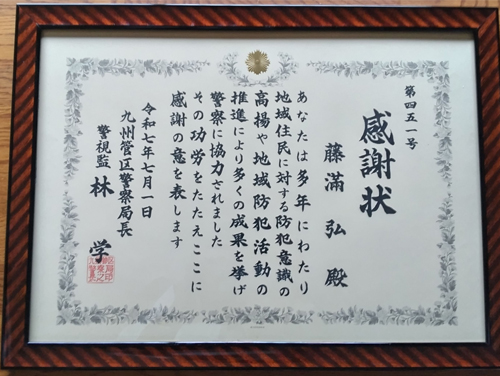 第四五一号
感謝状
藤滿弘殿
あなたは多年にわたり
地域住民に対する防犯意識の
高揚や地域防犯活動の
推進により多くの成果を挙げ
警察に協力されました
その功労をたたえここに
感謝の意を表します
令和七年七月一日
九州管区警察局長
警視監 林学